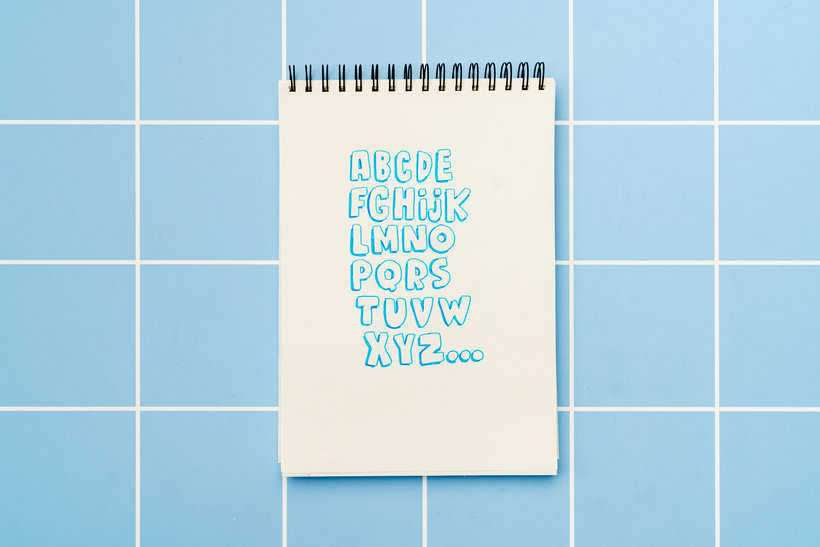 ABCDE
FGHijK
LMNO
PQRS
TUVW
XYZ...